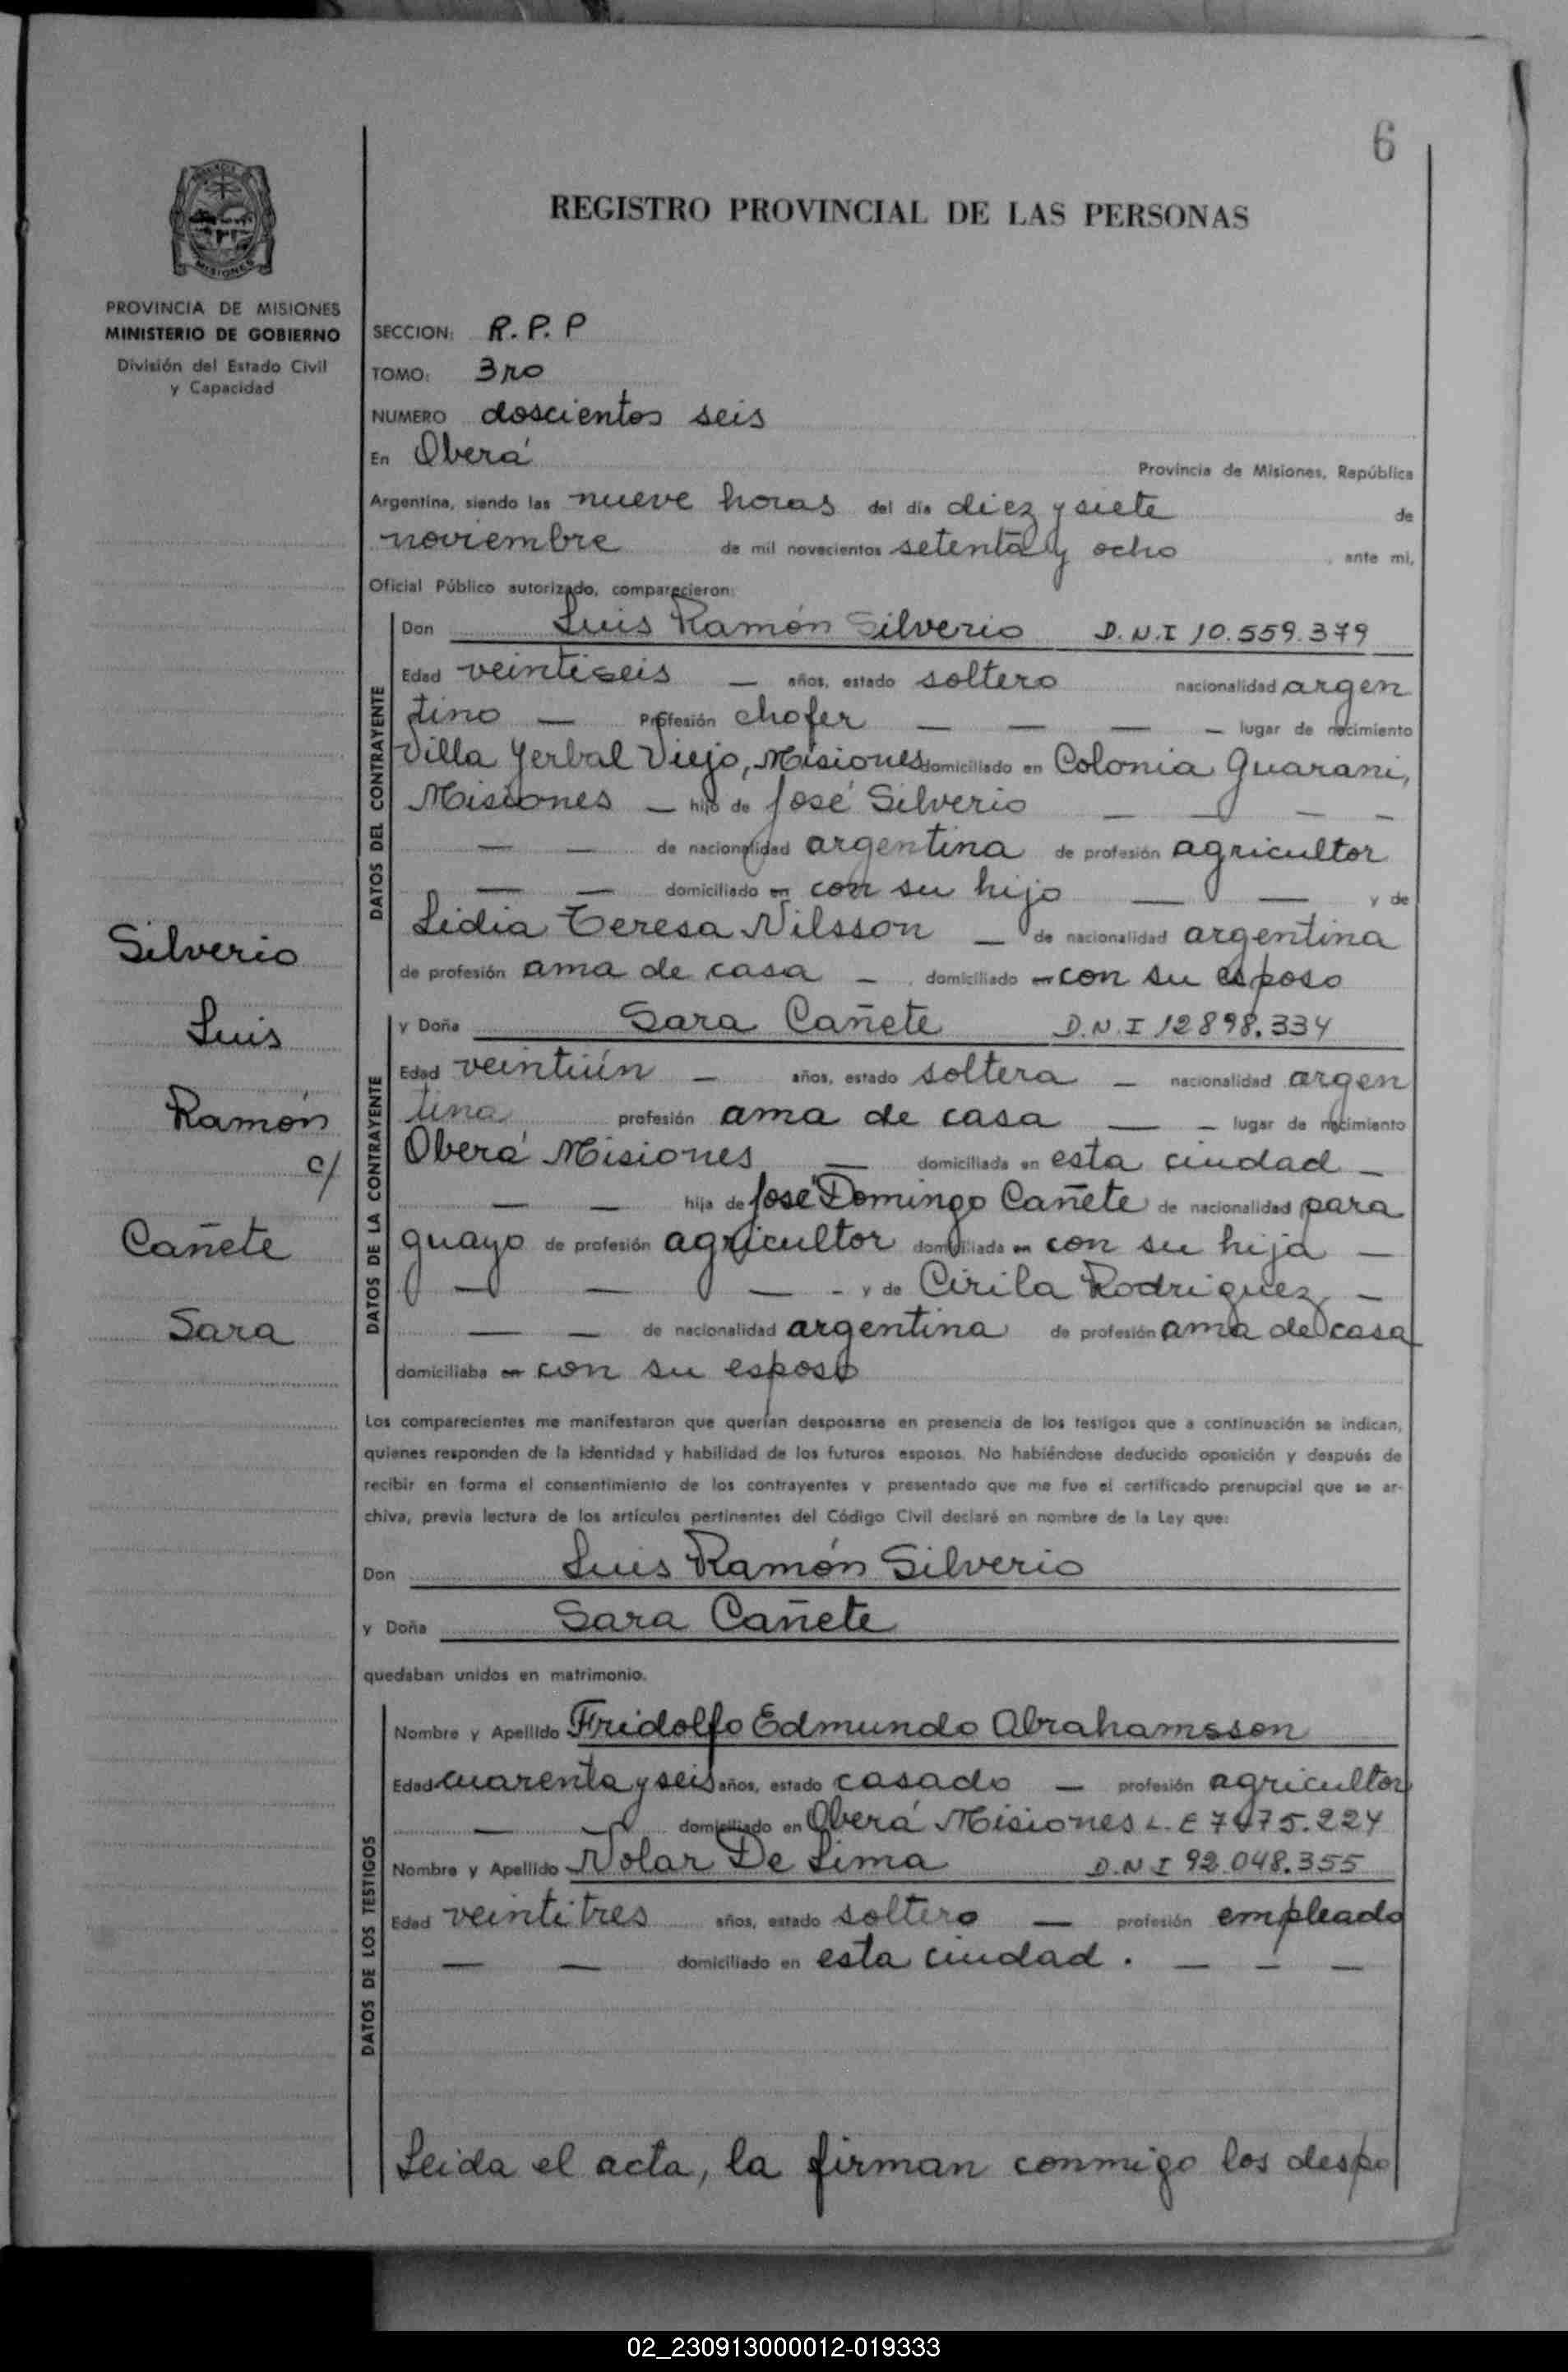 6
REGISTRO PROVINCIAL DE LAS PERSONAS
MISIONES
PROVINCIA DE MISIONES
MINISTERIO DE GOBIERNO
División del Estado Civil
y Capacidad
SECCION: R.P.P
TOMO: 3ro
NUMERO doscientos seis
En Oberá Provincia de Misiones, República
Argentina, siendo las nueve horas del día diez y siete de
noviembre de mil novecientos setenta y ocho, ante mi,
Oficial Público autorizado, comparecieron:
DATOS DEL CONTRAYENTE
Don Luis Ramón Silverio D.N.I 10.559.379
Edad veintiseis — años, estado soltero nacionalidad argen
tino — Profesión chofer — — — — lugar de nacimiento
Villa Yerbal Viejo, Misiones domiciliado en Colonia Guarani,
Misiones — hijo de José Silverio — — — —
— — de nacionalidad argentina de profesión agricultor
— — domiciliado en con su hijo — — y de
Lidia Teresa Nilsson — de nacionalidad argentina
de profesión ama de casa — domiciliado en con su esposo
DATOS DE LA CONTRAYENTE
y Doña Sara Cañete D.N.I 12898.334
Edad veintiún — años, estado soltera — nacionalidad argen
tina profesión ama de casa — — lugar de nacimiento
Oberá Misiones — domiciliada en esta ciudad —
— — hija de José Domingo Cañete de nacionalidad para
guayo de profesión agricultor domiciliada en con su hija —
— — — - y de Cirila Rodriguez —
— — de nacionalidad argentina de profesión ama de casa
domiciliaba en con su esposo
Los comparecientes me manifestaron que querían desposarse en presencia de los testigos que a continuación se indican,
quienes responden de la identidad y habilidad de los futuros esposos. No habiéndose deducido oposición y después de
recibir en forma el consentimiento de los contrayentes y presentado que me fue el certificado prenupcial que se ar-
chiva, previa lectura de los artículos pertinentes del Código Civil declaré en nombre de la Ley que:
Don Luis Ramón Silverio
y Doña Sara Cañete
quedaban unidos en matrimonio.
DATOS DE LOS TESTIGOS
Nombre y Apellido Fridolfo Edmundo Abrahamsson
Edad cuarenta y seis años, estado casado — profesión agricultor
— — domiciliado en Oberá Misiones L.E
Nombre y Apellido Nolar De Lima D.N.I 92.048.355
Edad veintitres años, estado soltero — profesión empleado
— — domiciliado en esta ciudad. — — —
Leida el acta, la firman conmigo los despo
Silverio
Luis
Ramón
c/
Cañete
Sara
02_230913000012-019333